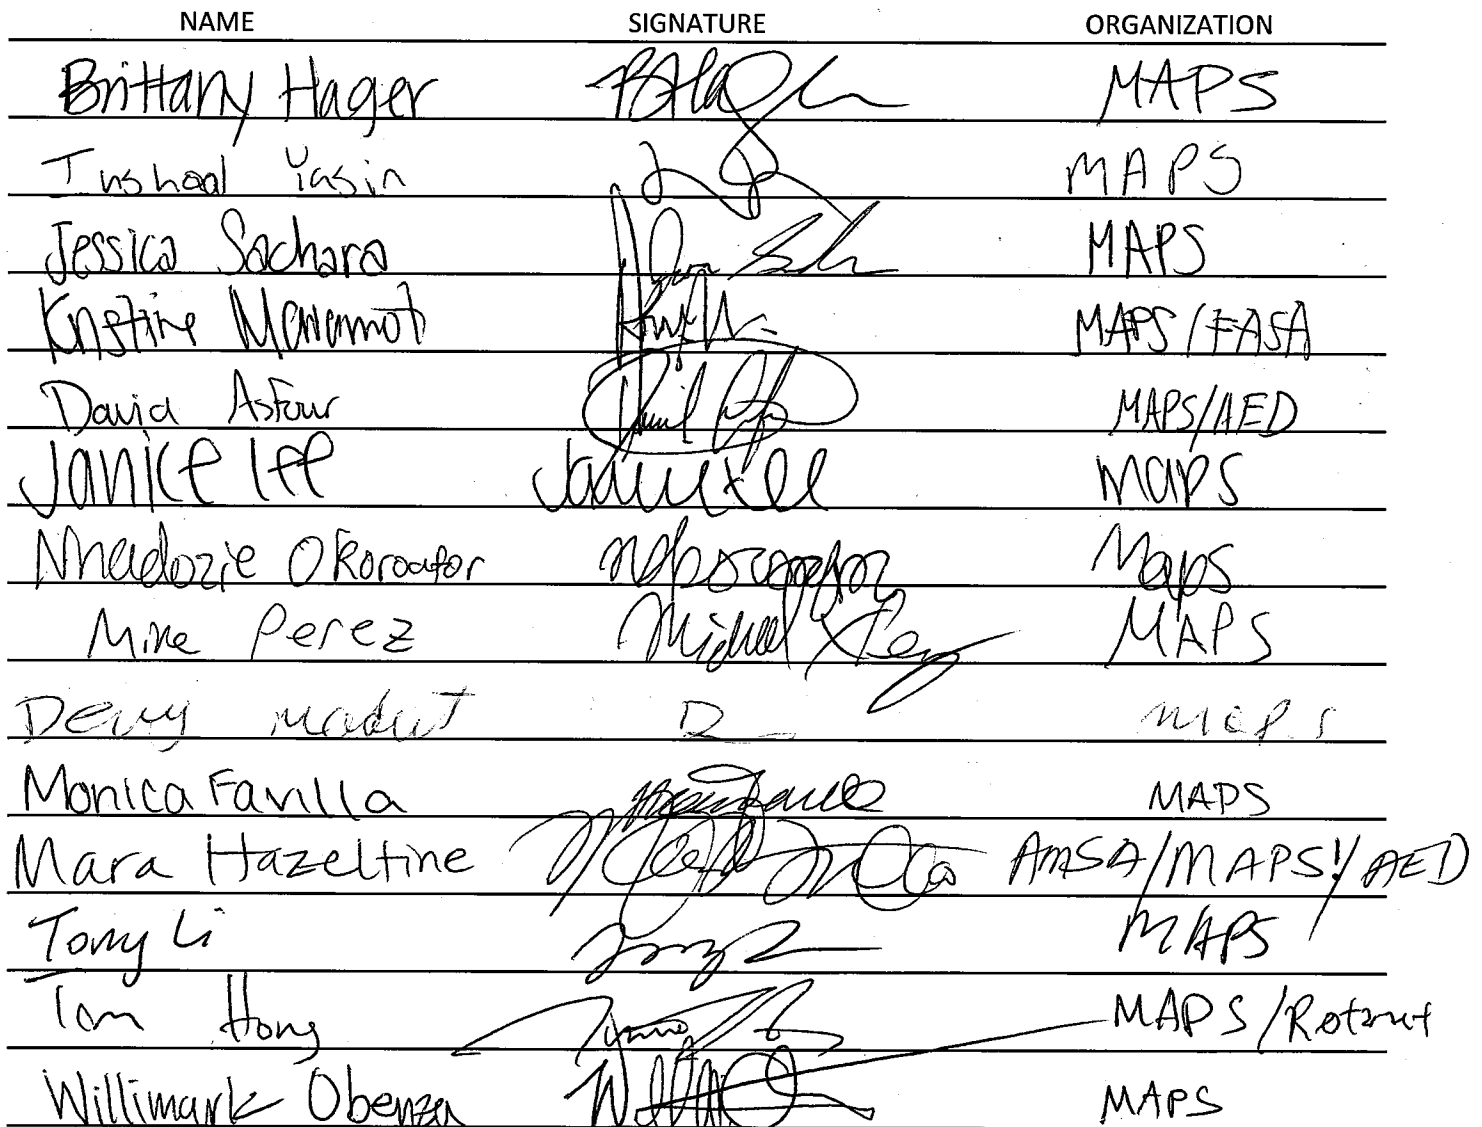 NAME SIGNATURE ORGANIZATION
Brittany Hager BHag MAPS
Inshaal Yasin MAPS
Jessica Sachara MAPS
Kristine MAPS/FASA
David Asfour MAPS/AED
Janice lee Janice Lee Maps
Nnadozie Okoroafor Maps
Mike Perez Michael Perez MAPS
Deny madut D maps
Monica Favilla MAPS
Mara Hazeltine AMSA/MAPS!/AED
Tony Li MAPS
Tam Hong MAPS/Rotaract
Willimark Obenza MAPS